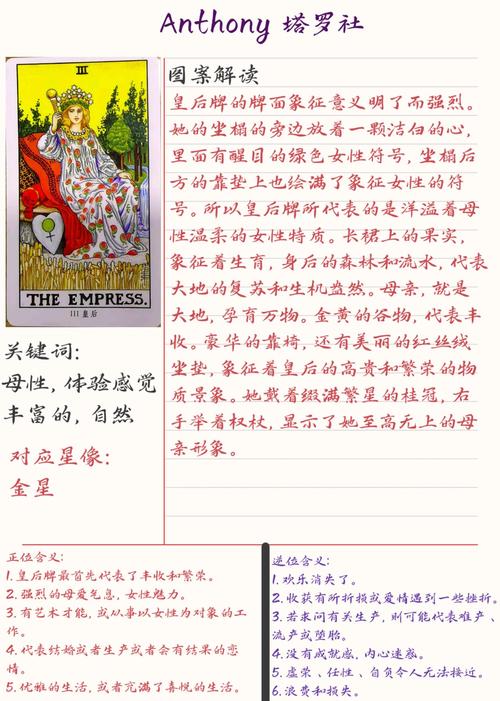 Anthony 塔罗社
III
THE EMPRESS.
III 皇后
图案解读
皇后牌的牌面象征意义明了而强烈。
她的坐榻的旁边放着一颗洁白的心，
里面有醒目的绿色女性符号，坐榻后
方的靠垫上也绘满了象征女性的符
号。所以皇后牌所代表的是洋溢着母
性温柔的女性特质。长裙上的果实，
象征着生育，身后的森林和流水，代表
大地的复苏和生机盎然。母亲，就是
大地，孕育万物。金黄的谷物，代表丰
收。豪华的靠椅，还有美丽的红丝绒
坐垫，象征着皇后的高贵和繁荣的物
质景象。她戴着缀满繁星的桂冠，右
手举着权杖，显示了她至高无上的母
亲形象。
关键词：
母性，体验感觉
丰富的，自然
对应星像：
金星
正位含义：
1. 皇后牌最首先代表了丰收和繁荣。
2. 强烈的母爱气息，女性魅力。
3. 有艺术才能，或从事以女性为对象的工
作。
4. 代表结婚或者生产或者会有结果的恋
情。
5. 优雅的生活，或者充满了喜悦的生活。
逆位含义：
1. 欢乐消失了。
2. 收获有所折损或爱情遇到一些挫折。
3. 若求问有关生产，则可能代表难产、
流产或堕胎。
4. 没有成就感，内心迷惑。
5. 虚荣、任性、自负令人无法接近。
6. 浪费和损失。